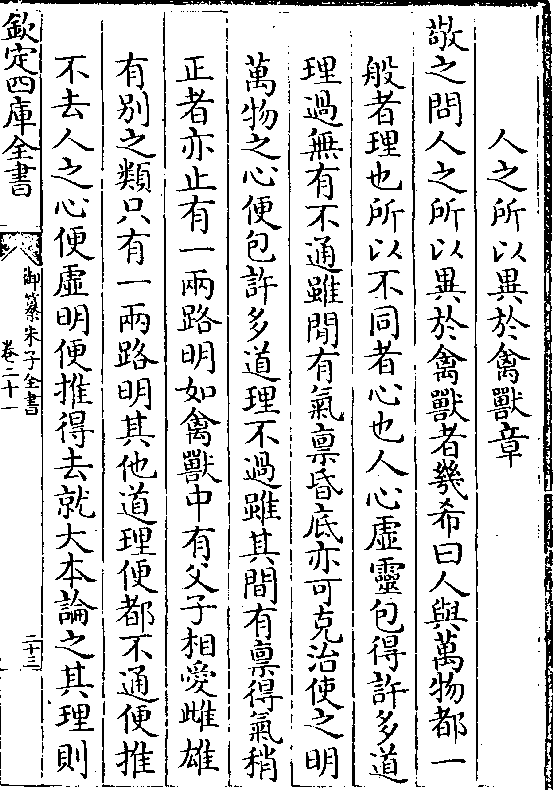 人之所以異於禽獸章
敬之問人之所以異於禽獸者幾希曰人與萬物都一
般者理也所以不同者心也人心虛靈包得許多道
理過無有不通雖閒有氣禀昏底亦可克治使之明
萬物之心便包許多道理不過雖其間有禀得氣稍
正者亦止有一兩路明如禽獸中有父子相愛雌雄
有别之類只有一兩路明其他道理便都不通便推
不去人之心便虛明便推得去就大本論之其理則
欽定四庫全書
御纂朱子全書
卷二十一
二十三